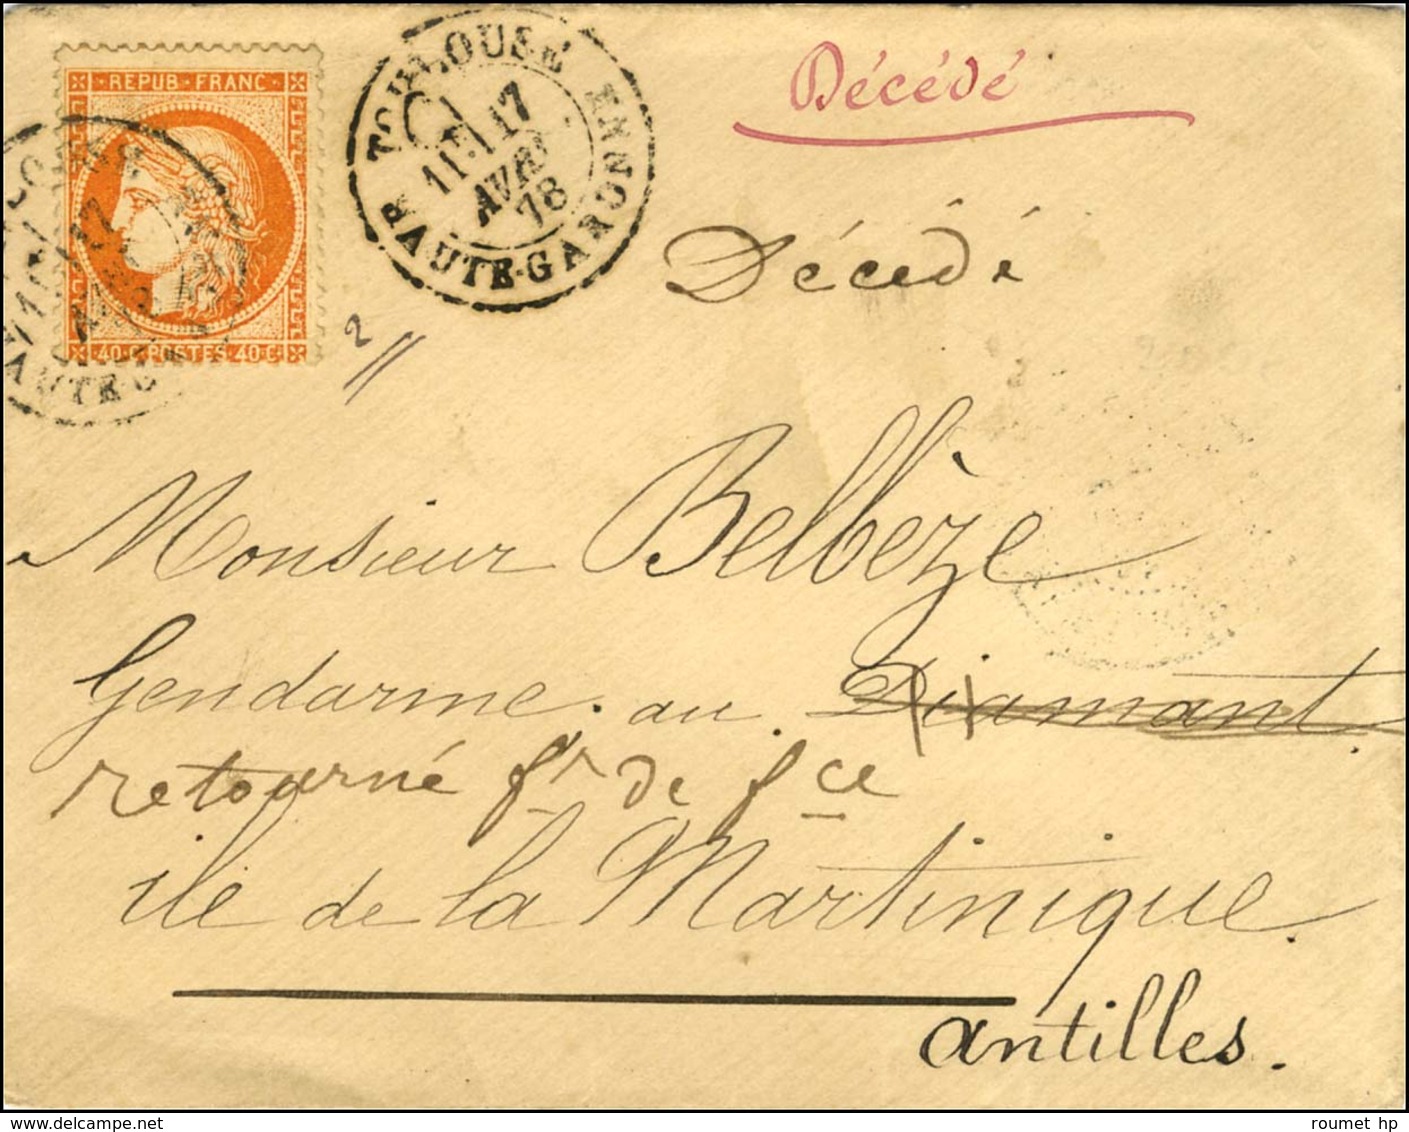 REPUB · FRANC
40 C POSTES 40 C
TOULOUSE
17
AVRIL
78
HAUTE-GARONNE
Décédé
Décédé
2
Monsieur Belbèze
Gendarme au Diamant.
retourné fr de fce
ile de la Martinique.
antilles.
roumet hp